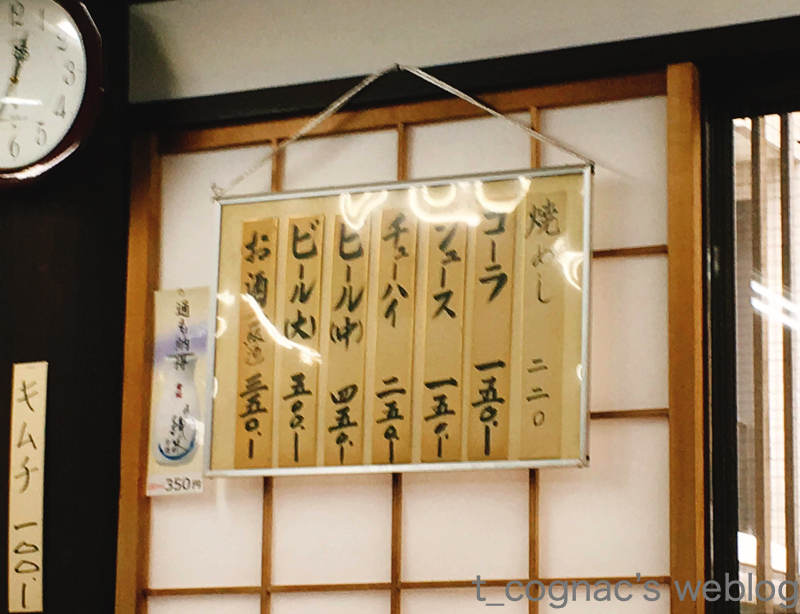 焼めし 二二〇
コーラ 一五〇.ー
ジュース 一五〇.ー
チューハイ 二五〇.ー
ビール(中) 四五〇.ー
ビール(大) 五〇〇.ー
お酒 三五〇.ー
通も納得
350円
キムチ 一〇〇.ー
12
1
2
3
4
5
6
t_cognac's weblog